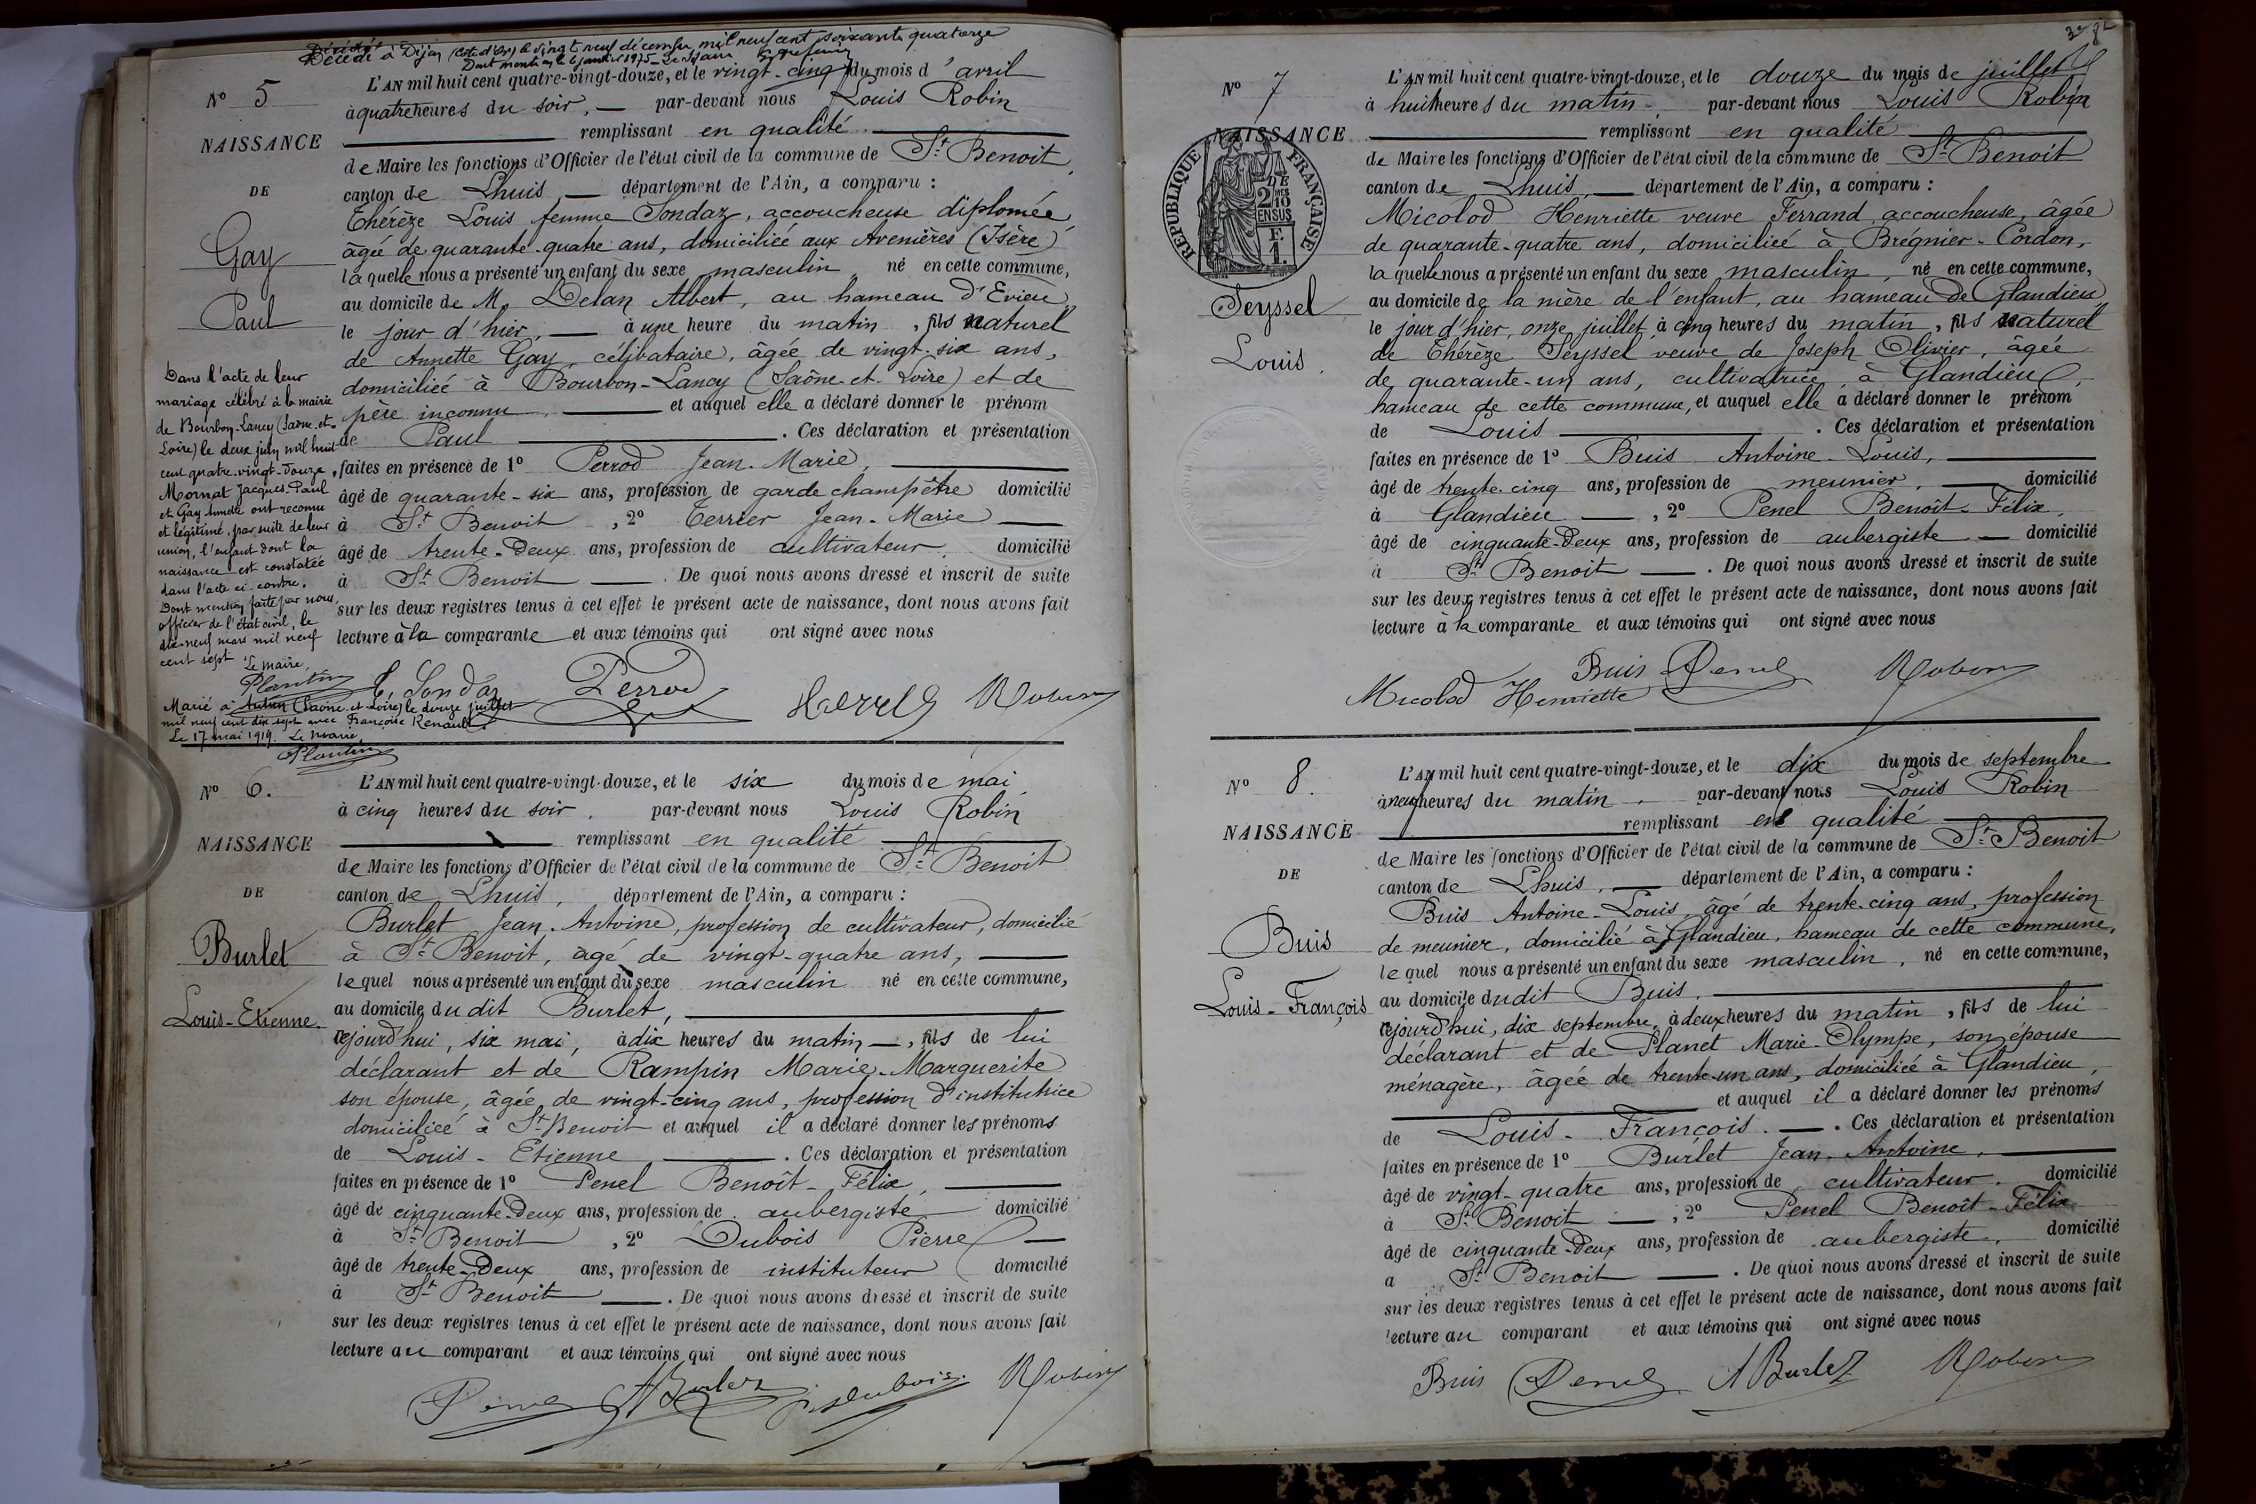 Décédé à Dijon (Côte d'Or) le vingt neuf décembre mil neuf cent soixante quatorze
Dont mention le 6 janvier 1975 - Le Maire
N° 5
NAISSANCE
DE
Gay
Paul
L'AN mil huit cent quatre-vingt-douze, et le vingt-cinq du mois d'avril
à quatre heures du soir, par-devant nous Louis Robin
remplissant en qualité
de Maire les fonctions d'Officier de l'état civil de la commune de St Benoit,
canton de Lhuis département de l'Ain, a comparu :
Thérèze Louis femme Sondaz, accoucheuse diplomée
âgée de quarante-quatre ans, domiciliée aux Avenières (Isère)
laquelle nous a présenté un enfant du sexe masculin né en cette commune,
au domicile de M. Delan Albert, au hameau d'Evieu
le jour d'hier, à une heure du matin, fils naturel
de Annette Gay, célibataire, âgée de vingt-six ans,
domiciliée à Bourbon-Lancy (Saône-et-Loire) et de
père inconnu, et auquel elle a déclaré donner le prénom
de Paul . Ces déclaration et présentation
faites en présence de 1° Perrod Jean-Marie,
âgé de quarante-six ans, profession de garde champêtre domicilié
à St Benoit, 2° Terrier Jean-Marie
âgé de trente-deux ans, profession de cultivateur, domicilié
à St Benoit . De quoi nous avons dressé et inscrit de suite
sur les deux registres tenus à cet effet le présent acte de naissance, dont nous avons fait
lecture à la comparante et aux témoins qui ont signé avec nous
T. Sondaz Perrod Robin
Dans l'acte de leur
mariage célébré à la mairie
de Bourbon-Lancy (Saône-et-
Loire) le deux juin mil huit
cent quatre-vingt-douze,
Mornat Jacques-Paul
et Gay Annette ont reconnu
et légitimé, par suite de leur
union, l'enfant dont la
naissance est constatée
dans l'acte ci-contre.
Dont mention faite par nous,
officier de l'état civil, le
dix-neuf mars mil neuf
cent sept
Le maire,
Plantin
Marié à Autun (Saône-et-Loire) le douze juillet
mil neuf cent dix sept avec Françoise Renault
Le 17 mai 1919. Le Maire,
Plantin
N° 6.
NAISSANCE
DE
Burlet
Louis-Etienne.
L'AN mil huit cent quatre-vingt-douze, et le six du mois de mai
à cinq heures du soir, par-devant nous Louis Robin
remplissant en qualité
de Maire les fonctions d'Officier de l'état civil de la commune de St Benoit
canton de Lhuis, département de l'Ain, a comparu :
Burlet Jean-Antoine, profession de cultivateur, domicilié
à St Benoit, âgé de vingt-quatre ans,
lequel nous a présenté un enfant du sexe masculin né en cette commune,
au domicile dudit Burlet,
cejourd'hui, six mai, à dix heures du matin, fils de lui
déclarant et de Rampin Marie-Marguerite
son épouse, âgée de vingt-cinq ans, profession d'institutrice
domiciliée à St Benoit et auquel il a déclaré donner les prénoms
de Louis-Etienne . Ces déclaration et présentation
faites en présence de 1° Penel Benoît-Félix,
âgé de cinquante-deux ans, profession de aubergiste domicilié
à St Benoit, 2° Dubois Pierre
âgé de trente-deux ans, profession de instituteur domicilié
à St Benoit . De quoi nous avons dressé et inscrit de suite
sur les deux registres tenus à cet effet le présent acte de naissance, dont nous avons fait
lecture au comparant et aux témoins qui ont signé avec nous
Penel A Burlet P. Dubois. Robin
N° 7
NAISSANCE
RÉPUBLIQUE FRANÇAISE
2 DMES 10
EN SUS
F. 1.
Seyssel
Louis.
L'AN mil huit cent quatre-vingt-douze, et le douze du mois de juillet
à huit heures du matin, par-devant nous Louis Robin
remplissant en qualité
de Maire les fonctions d'Officier de l'état civil de la commune de St Benoit
canton de Lhuis, département de l'Ain, a comparu :
Micolod Henriette veuve Ferrand accoucheuse, âgée
de quarante-quatre ans, domiciliée à Brégnier-Cordon,
laquelle nous a présenté un enfant du sexe masculin, né en cette commune,
au domicile de la mère de l'enfant, au hameau de Glandieu
le jour d'hier, onze juillet, à cinq heures du matin, fils naturel
de Thérèze Seyssel veuve de Joseph Olivier, âgée
de quarante-un ans, cultivatrice, à Glandieu,
hameau de cette commune, et auquel elle a déclaré donner le prénom
de Louis . Ces déclaration et présentation
faites en présence de 1° Buis Antoine-Louis,
âgé de trente-cinq ans, profession de meunier, domicilié
à Glandieu, 2° Penel Benoît-Félix,
âgé de cinquante-deux ans, profession de aubergiste domicilié
à St Benoit . De quoi nous avons dressé et inscrit de suite
sur les deux registres tenus à cet effet le présent acte de naissance, dont nous avons fait
lecture à la comparante et aux témoins qui ont signé avec nous
Buis Penel Robin
Micolod Henriette
N° 8.
NAISSANCE
DE
Buis
Louis-François
L'AN mil huit cent quatre-vingt-douze, et le dix du mois de septembre
à neuf heures du matin, par-devant nous Louis Robin
remplissant en qualité
de Maire les fonctions d'Officier de l'état civil de la commune de St Benoit
canton de Lhuis, département de l'Ain, a comparu :
Buis Antoine-Louis, âgé de trente-cinq ans, profession
de meunier, domicilié à Glandieu, hameau de cette commune,
lequel nous a présenté un enfant du sexe masculin, né en cette commune,
au domicile dudit Buis,
cejourd'hui, dix septembre, à deux heures du matin, fils de lui
déclarant et de Planet Marie-Olympe, son épouse
ménagère, âgée de trente-un ans, domiciliée à Glandieu,
et auquel il a déclaré donner les prénoms
de Louis-François. . Ces déclaration et présentation
faites en présence de 1° Burlet Jean-Antoine,
âgé de vingt-quatre ans, profession de cultivateur, domicilié
à St Benoit, 2° Penel Benoît-Félix
âgé de cinquante-deux ans, profession de aubergiste, domicilié
a St Benoit . De quoi nous avons dressé et inscrit de suite
sur les deux registres tenus à cet effet le présent acte de naissance, dont nous avons fait
lecture au comparant et aux témoins qui ont signé avec nous
Buis Penel A Burlet Robin